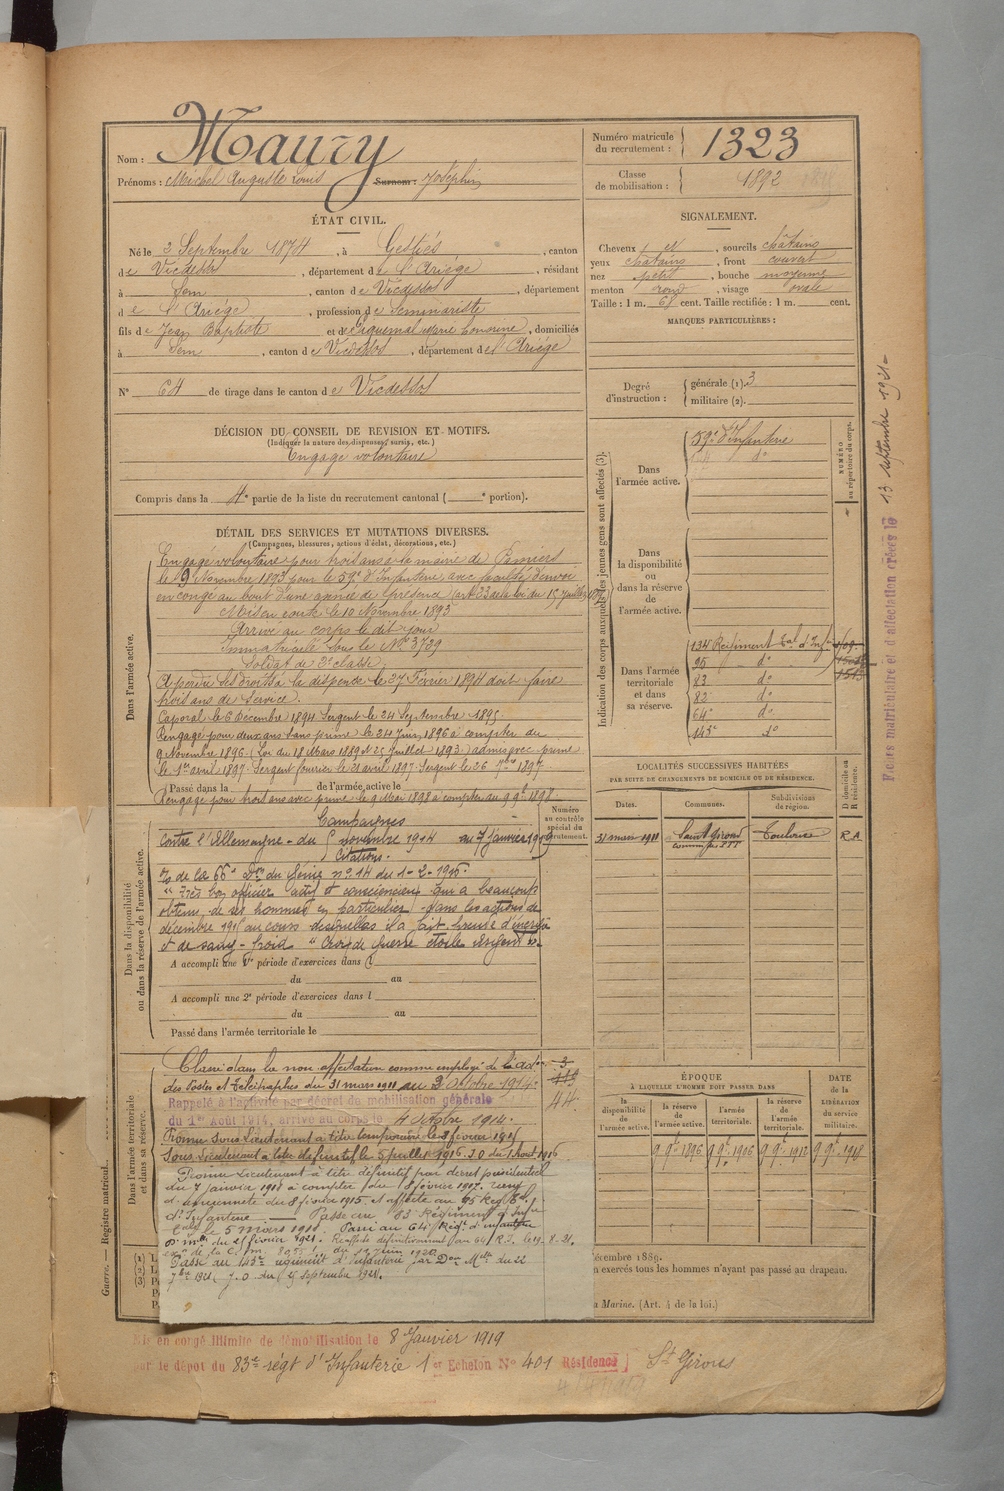 Nom : Maury
Prénoms : Michel Auguste Louis Surnom : Joséphin
Numéro matricule du recrutement : 1323
Classe de mobilisation : 1892
ÉTAT CIVIL.
Né le 2 Septembre 1874, à Gesties, canton
de Vicdessos, département de l'Ariège, résidant
à Sem, canton de Vicdessos, département
de l'Ariège, profession de Séminariste
fils de Jean Baptiste et de Marie, domiciliés
à Sem, canton de Vicdessos, département de l'Ariège
N° 64 de tirage dans le canton de Vicdessos
SIGNALEMENT.
Cheveux et, sourcils châtains
yeux châtains, front couvert
nez petit, bouche moyenne
menton rond, visage ovale
Taille : 1 m. cent. Taille rectifiée : 1 m. cent.
MARQUES PARTICULIÈRES :
Degré d'instruction : générale (1). 3
militaire (2).
DÉCISION DU CONSEIL DE REVISION ET MOTIFS.
(Indiquer la nature des dispenses, sursis, etc.)
Engagé volontaire
Compris dans la 4e partie de la liste du recrutement cantonal ( e portion).
DÉTAIL DES SERVICES ET MUTATIONS DIVERSES.
(Campagnes, blessures, actions d'éclat, décorations, etc.)
Dans l'armée active.
Engagé volontaire pour trois ans à la mairie de Pamiers
le 9 Novembre 1893 pour le 59e d'Infanterie avec faculté d'envoi
en congé au bout d'une année de présence (art 23 de la loi du 15 Juillet
Mis en route le 10 Novembre 1893
Arrivé au corps le dit jour
Immatriculé sous le No 3729
Soldat de 2e classe
A perdu ses droits à la dispense le 27 Février 1894 doit faire
trois ans de service.
Caporal le 6 Décembre 1894 Sergent le 24 Septembre 1895
Rengagé pour deux ans sans prime le 24 Juin 1896 à compter du
9 Novembre 1896 (Loi du 18 Mars 1889 et 25 Juillet 1893) admis avec prime
le 1er avril 1897. Sergent fourrier le 21 avril 1897. Sergent le 26 7bre 1897.
Passé dans la de l'armée active le
Rengagé pour trois ans avec prime le 9 Mai 1898 à compter du 9 9bre 1898
Numéro au contrôle spécial du recrutement.
Dans la disponibilité ou dans la réserve de l'armée active.
Campagnes
Contre l'Allemagne - du 5 novembre 1914 au 7 janvier 1919
Citations.
de la 66e Don du Génie no 14 du 1-2-1916.
"Très bon officier actif et consciencieux qui a beaucoup
obtenu de ses hommes en particulier dans les actions de
décembre 1915 au cours desquelles il a fait preuve d'énergie
et de sang-froid" Croix de guerre étoile argent
A accompli une 1e période d'exercices dans l
du au
A accompli une 2e période d'exercices dans l
du au
Passé dans l'armée territoriale le
Dans l'armée territoriale et dans sa réserve.
Classé dans la non affectation comme employé de l'adon
des Postes et Télégraphes du 31 mars 1911 au 3 Octobre 1914.
Rappelé à l'activité par décret de mobilisation générale
du 1er Août 1914, arrivé au corps le 4 octobre 1914.
Promu Sous-Lieutenant à titre temporaire le 8 février 1915
Sous Lieutenant à titre définitif le 5 juillet 1916 J.O du 1 Aout 1916
Promu Lieutenant à titre définitif par décret présidentiel
du 7 janvier 1918 à compter du 8 février 1917. rang
d'ancienneté du 8 février 1915 et affecté au 95 Reg. Eal
d'Infanterie Passé au 83e Régiment d'Infie
le 5 mars 1918. Passé au 64e Régt d'infanterie
du 25 février 1921. Réaffecté définitivement au 64e R.I. le 19.8.21.
du 17 juin 1920
Passé au 143e régiment d'infanterie par Don Mlle du 22
7bre 1921 J.O du 25 septembre 1921.
Indication des corps auxquels les jeunes gens sont affectés (3).
NUMÉRO au répertoire du corps.
Dans l'armée active.
59e d'Infanterie
do
Dans la disponibilité ou dans la réserve de l'armée active.
Dans l'armée territoriale et dans sa réserve.
134 Régiment Eal d'Infie
95 do
83 do
82 do
64e do
143e do
LOCALITÉS SUCCESSIVES HABITÉES
PAR SUITE DE CHANGEMENTS DE DOMICILE OU DE RÉSIDENCE.
Dates. Communes. Subdivisions de région. D domicile ou R résidence.
31 mars 1911 Saint Girons commis des PTT Toulouse R.A
ÉPOQUE
À LAQUELLE L'HOMME DOIT PASSER DANS
DATE de la LIBÉRATION du service militaire.
la disponibilité de l'armée active. la réserve de l'armée active. l'armée territoriale. la réserve de l'armée territoriale.
9 9bre 1896 9 9bre 1906 9 9bre 1912 9 9bre 1918
décembre 1889.
n exercés tous les hommes n'ayant pas passé au drapeau.
a Marine. (Art. 4 de la loi.)
Guerre. — Registre matricul
Mis en congé illimité de démobilisation le 8 Janvier 1919
par le dépôt du 83e régt d'Infanterie 1er Echelon No 401 Résidence St Girons
Fiches matriculaire et d'affectation créées le 13 septembre 1921